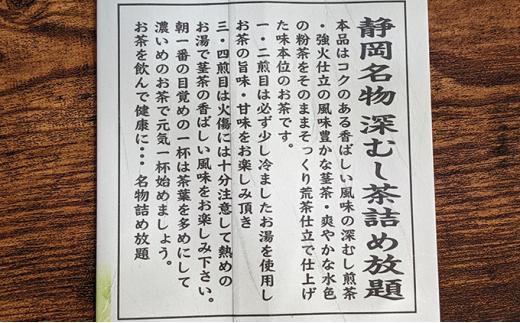 静岡名物 深むし茶詰め放題
本品はコクのある香ばしい風味の深むし煎茶
・強火仕立の風味豊かな茎茶・爽やかな水色
の粉茶をそのままそっくり荒茶仕立で仕上げ
た味本位のお茶です。
一・二煎目は必ず少し冷ましたお湯を使用し
お茶の旨味・甘味をお楽しみ頂き
三・四煎目は火傷には十分注意して熱めの
お湯で茎茶の香ばしい風味をお楽しみ下さい。
朝一番の目覚めの一杯は茶葉を多めにして
濃いめのお茶で元気一杯始めましょう。
お茶を飲んで健康に・・・名物詰め放題